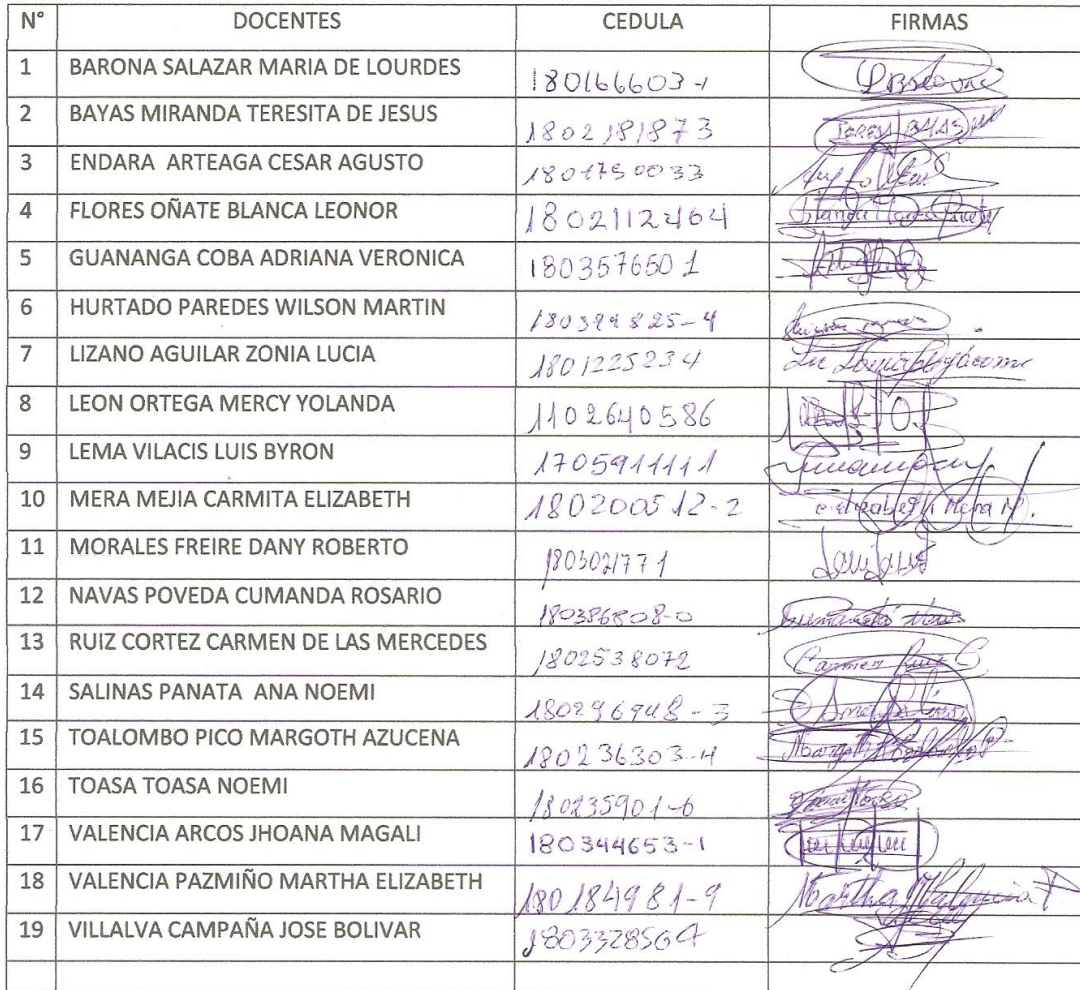 N° DOCENTES CEDULA FIRMAS
1 BARONA SALAZAR MARIA DE LOURDES 180166603-1
2 BAYAS MIRANDA TERESITA DE JESUS 1802181873 TERESA BAYAS
3 ENDARA ARTEAGA CESAR AGUSTO
4 FLORES OÑATE BLANCA LEONOR 1802112464
5 GUANANGA COBA ADRIANA VERONICA 180357650 1
6 HURTADO PAREDES WILSON MARTIN
7 LIZANO AGUILAR ZONIA LUCIA 1801225234
8 LEON ORTEGA MERCY YOLANDA 1102640586
9 LEMA VILACIS LUIS BYRON 1705911111
10 MERA MEJIA CARMITA ELIZABETH 180200512-2 c. elizabeth Mera M.
11 MORALES FREIRE DANY ROBERTO
12 NAVAS POVEDA CUMANDA ROSARIO 180386808-0
13 RUIZ CORTEZ CARMEN DE LAS MERCEDES 1802538072 Carmen Ruiz C.
14 SALINAS PANATA ANA NOEMI 180296948-3
15 TOALOMBO PICO MARGOTH AZUCENA 180236303-4
16 TOASA TOASA NOEMI 180235901-6
17 VALENCIA ARCOS JHOANA MAGALI 180344653-1
18 VALENCIA PAZMIÑO MARTHA ELIZABETH 180184981-9 Martha Valencia P
19 VILLALVA CAMPAÑA JOSE BOLIVAR